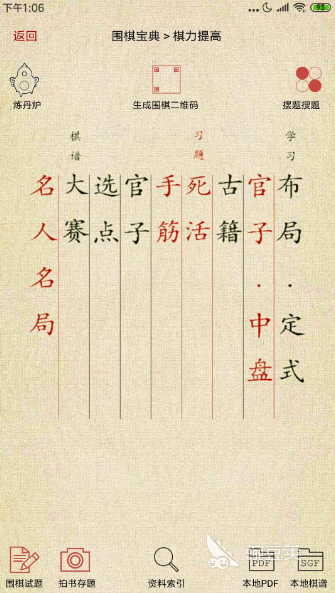 下午1:06
93
返回
围棋宝典 > 棋力提高
炼丹炉
生成围棋二维码
摆题摆题
学习
习题
棋谱
布局·定式
官子·中盘
古籍
死活
手筋
官子
选点
大赛
名人名局
围棋试题
拍书存题
资料索引
PDF
本地PDF
SGF
本地棋谱